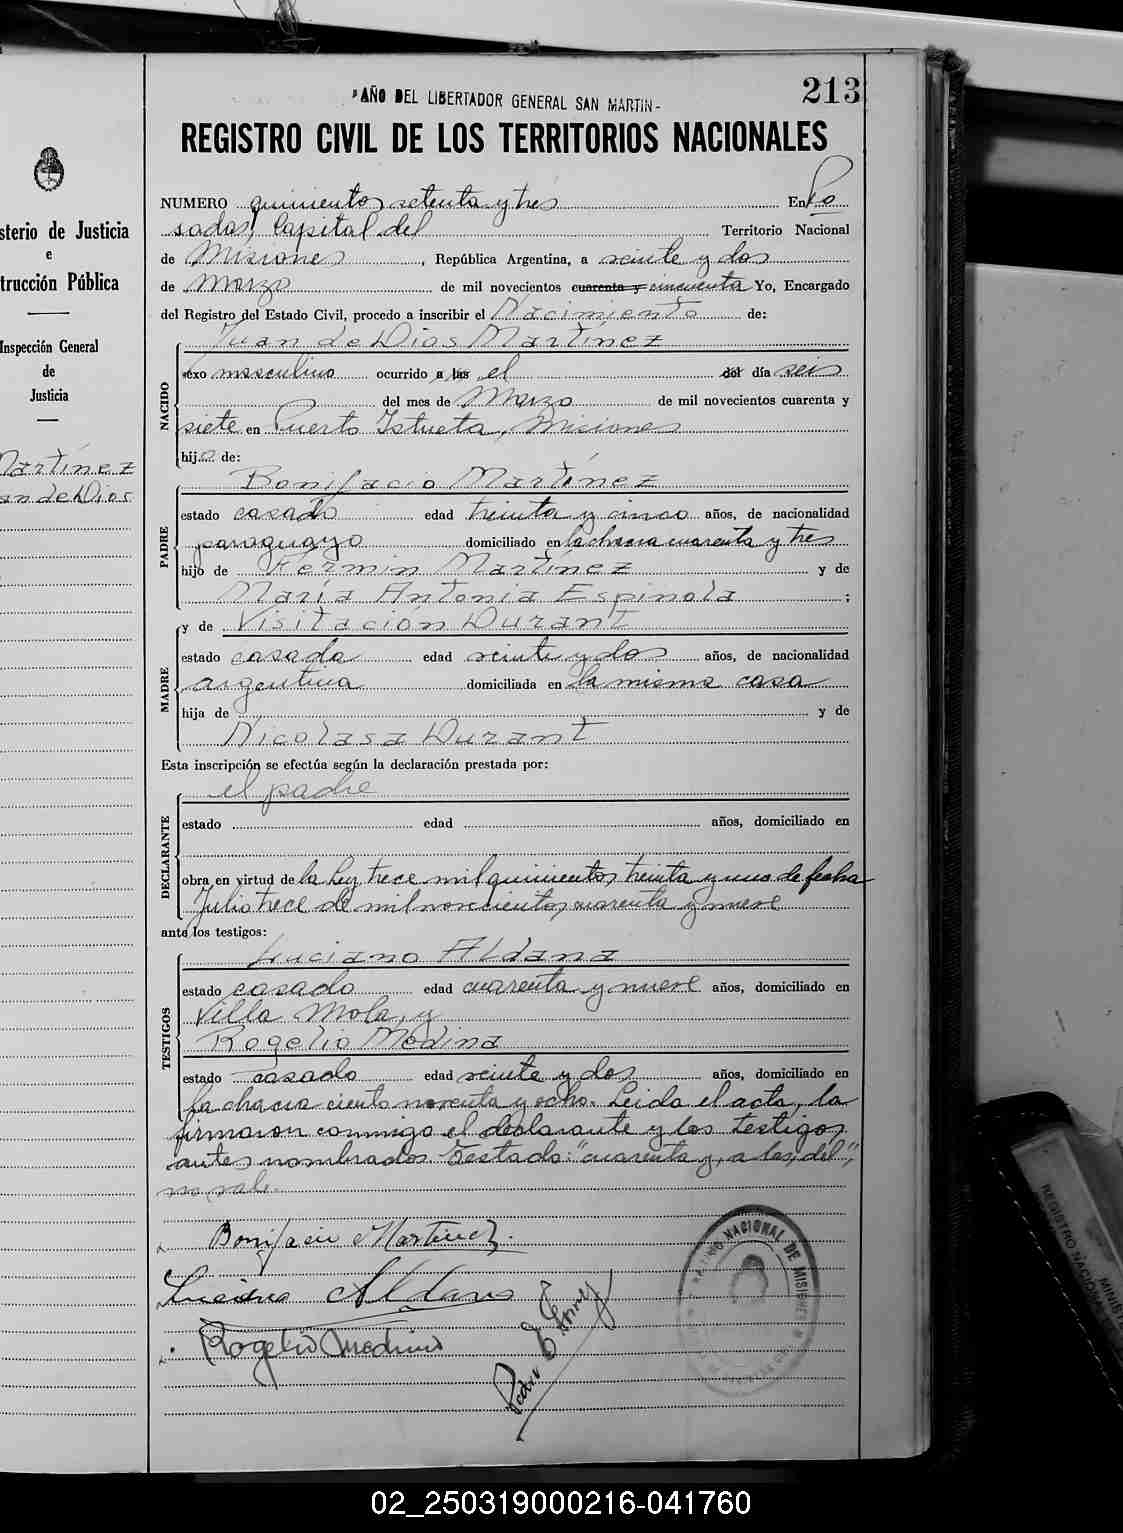 213
"AÑO DEL LIBERTADOR GENERAL SAN MARTIN-
REGISTRO CIVIL DE LOS TERRITORIOS NACIONALES
sterio de Justicia
e
trucción Pública
Inspección General
de
Justicia
Martínez
an de Dios
NUMERO quinientos setenta y tres En Po
sadas, Capital del Territorio Nacional
de Misiones, República Argentina, a veinte y dos
de Marzo de mil novecientos cuarenta y cincuenta Yo, Encargado
del Registro del Estado Civil, procedo a inscribir el Nacimiento de:
NACIDO
Juan de Dios Martínez
sexo masculino ocurrido a las el del día seis
del mes de Marzo de mil novecientos cuarenta y
siete en Puerto Istueta, Misiones
hijo de:
PADRE
Bonifacio Martínez
estado casado edad treinta y cinco años, de nacionalidad
paraguayo domiciliado en la chacra cuarenta y tres
hijo de Fermín Martínez y de
María Antonia Espinola;
MADRE
y de Visitación Durant
estado casada edad veinte y dos años, de nacionalidad
argentina domiciliada en la misma casa
hija de y de
Nicolasa Durant
Esta inscripción se efectúa según la declaración prestada por:
DECLARANTE
el padre
estado edad años, domiciliado en
obra en virtud de la Ley trece mil quinientos treinta y uno de fecha
Julio trece de mil novecientos cuarenta y nueve
ante los testigos:
TESTIGOS
Luciano Aldana
estado casado edad cuarenta y nueve años, domiciliado en
Villa Mola, y
Rogelio Medina
estado casado edad veinte y dos años, domiciliado en
la chacra ciento noventa y ocho. Leida el acta, la
firmaron conmigo el declarante y los testigos
antes nombrados. Testado: "cuarenta y, a las, del",
no vale.
Bonifacio Martinez.
Luciano Aldana
Rogelio Medina
NACIONAL DE MISIONES
REGISTRO NACIONAL
MINIST
02_250319000216-041760